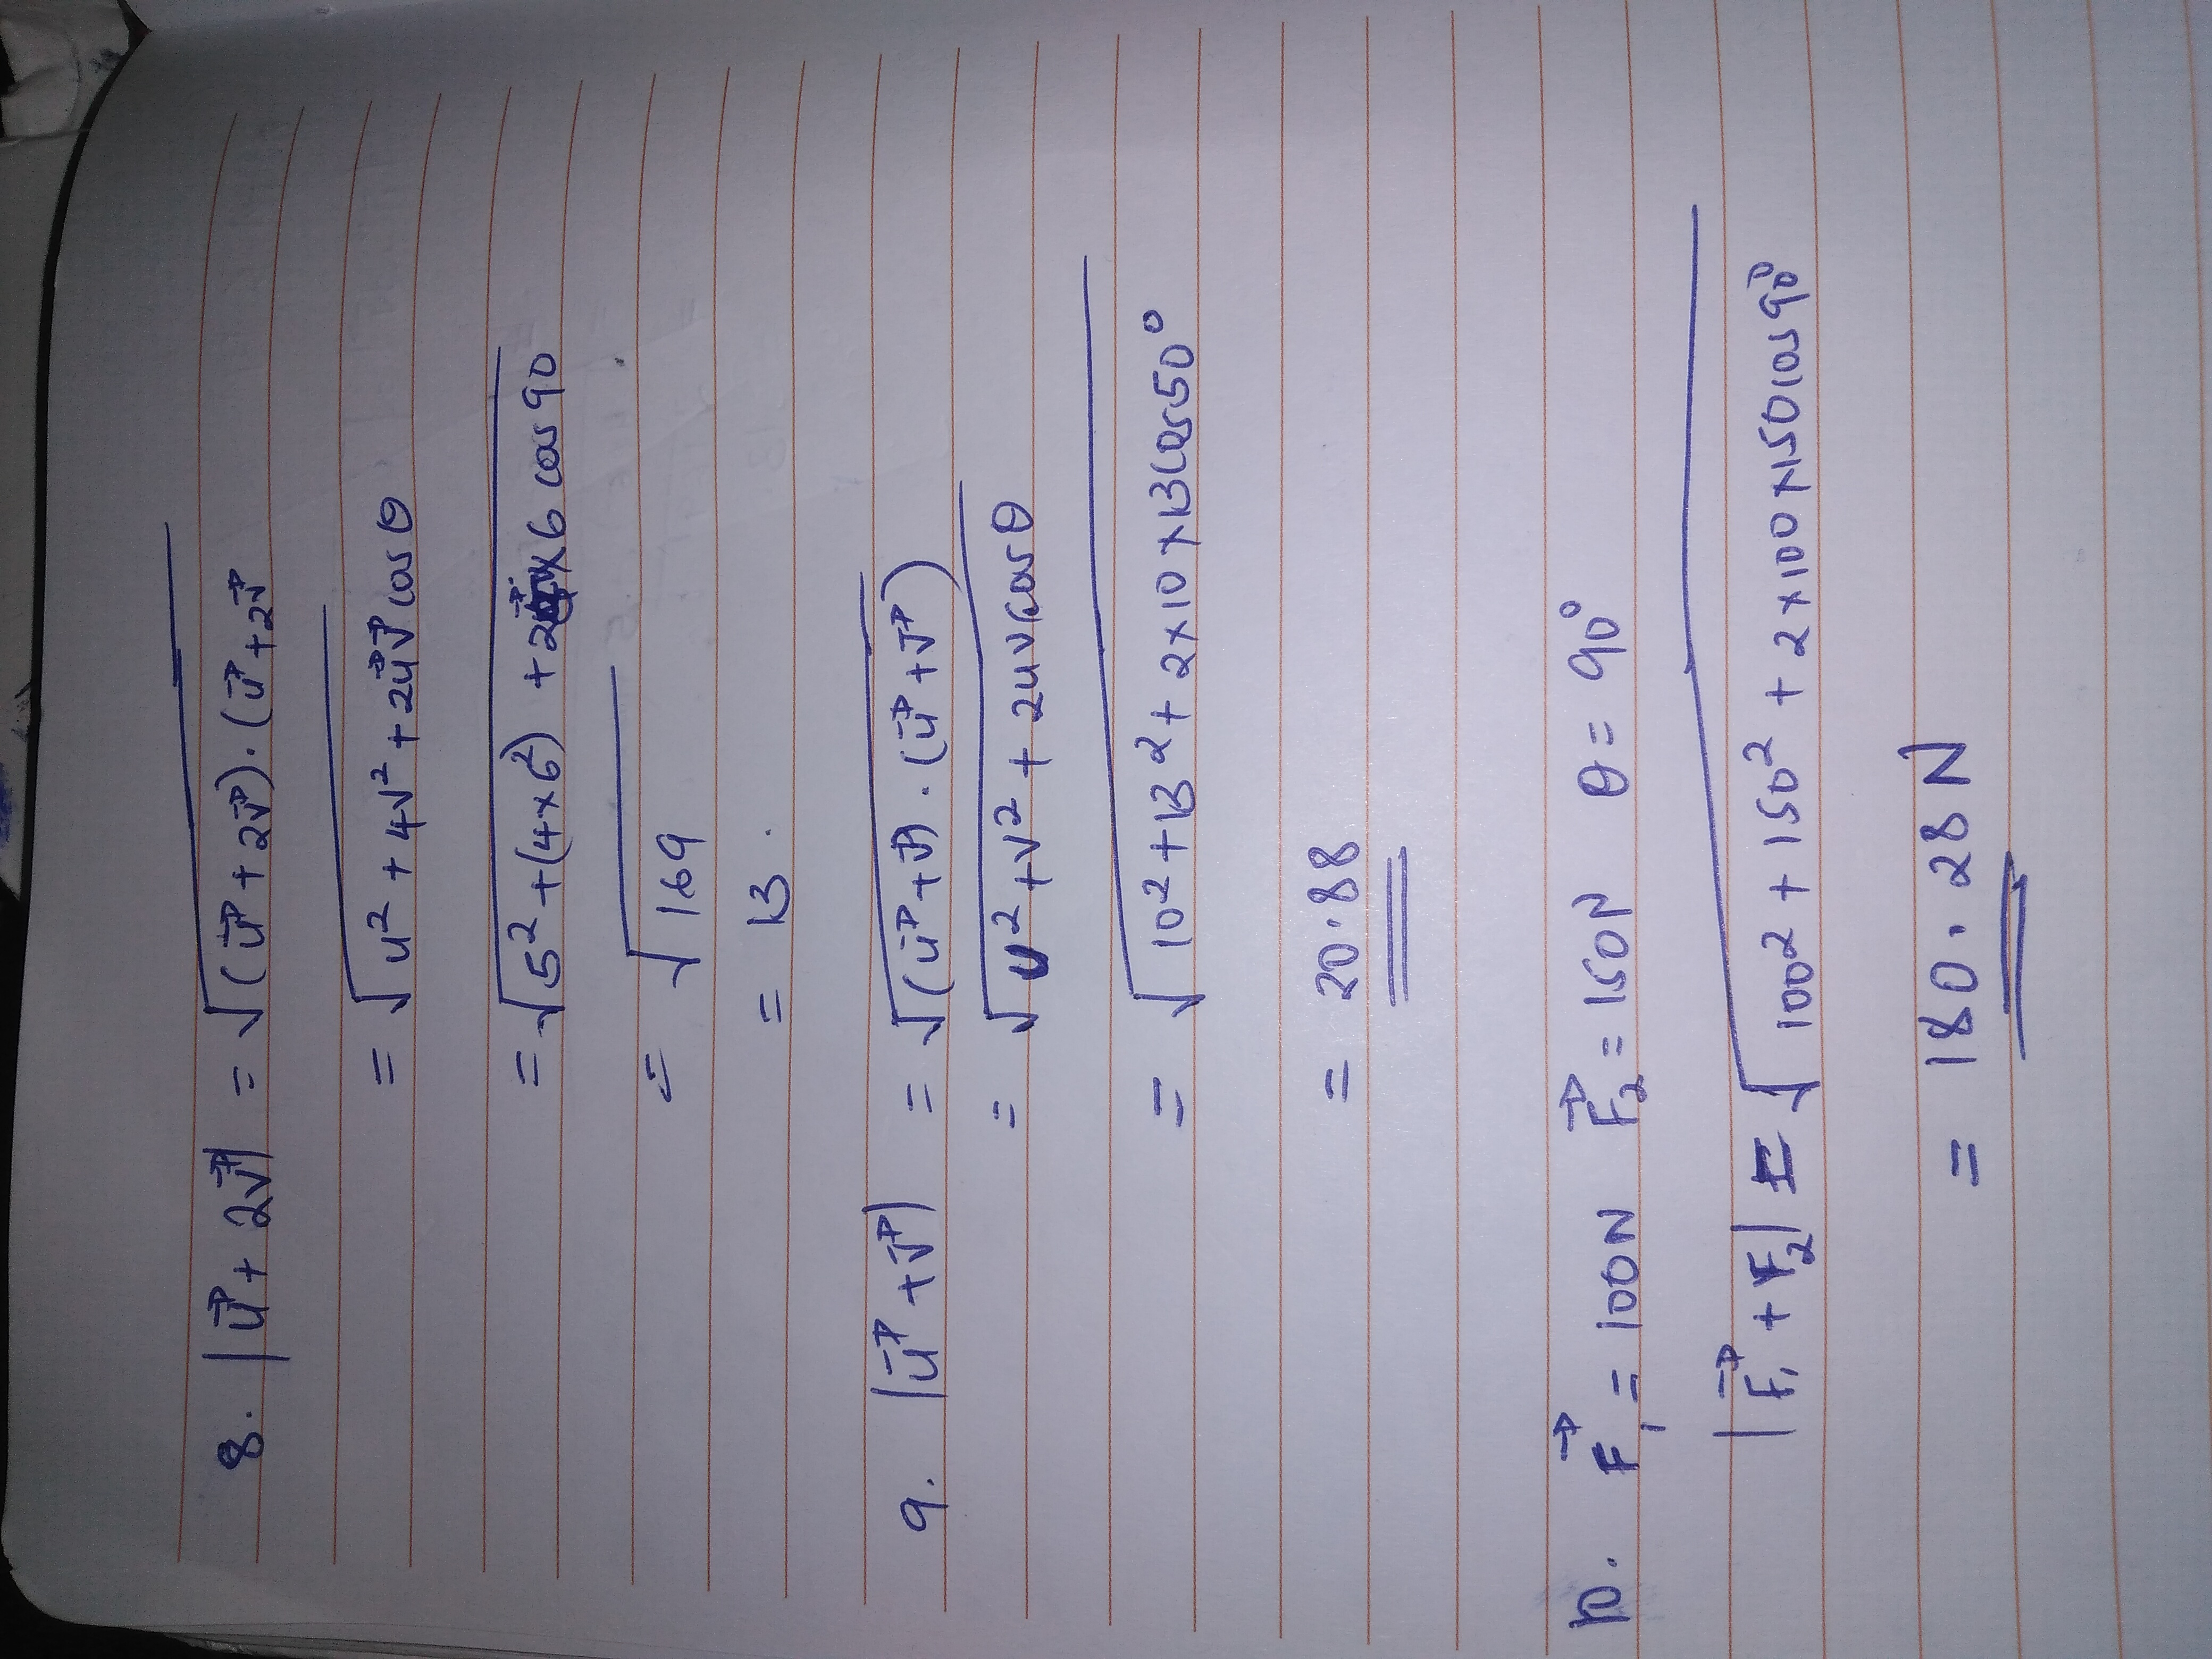 8. |u⃗ + 2v⃗| = √(u⃗ + 2v⃗)·(u⃗ + 2v⃗
= √u² + 4v² + 2u⃗v⃗ cos θ
= √5² + (4×6²) + 2×6 cos 90
= √169
= 13.
9. |u⃗ + v⃗| = √(u⃗ + v⃗)·(u⃗ + v⃗)
= √u² + v² + 2uv cos θ
= √10² + 13² + 2×10×13 cos 50°
= 20.88
10. F⃗₁ = 100N F⃗₂ = 150N θ = 90°
|F⃗₁ + F₂| = √100² + 150² + 2×100×150 cos 90°
= 180.28N